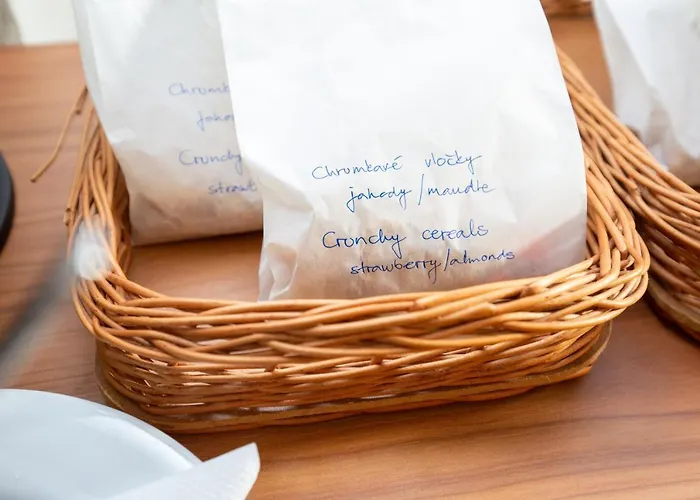 Chrumkavé vločky
jahody/maudle
Crunchy cereals
strawberry/almonds
Chrumk
jahod
Crunchy
strawb